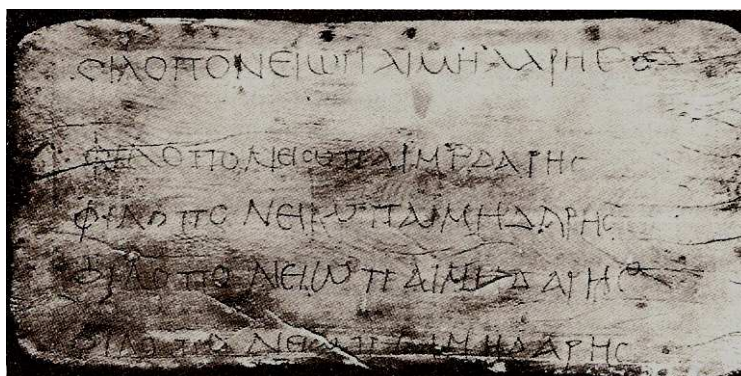 ΦΙΛΟΠΟΝΕΙΩΠΑΙΜΗΔΑΡΗC
ΦΙΛΟΠΟΝΕΙΩΠΑΙΜΗΔΑΡΗC
ΦΙΛΟΠΟΝΕΙΩΠΑΙΜΗΔΑΡΗC
ΦΙΛΟΠΟΝΕΙΩΠΑΙΜΗΔΑΡΗC
ΦΙΛΟΠΟΝΕΙΩΠΑΙΜΗΔΑΡΗC